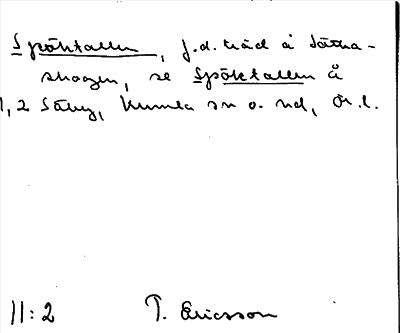 Spöktallen, f.d. träd å Sätra-
skogen, se Spöktallen å
1,2 Säby, Kumla sn o. hd, Ör. l.
11:2 T. Ericsson